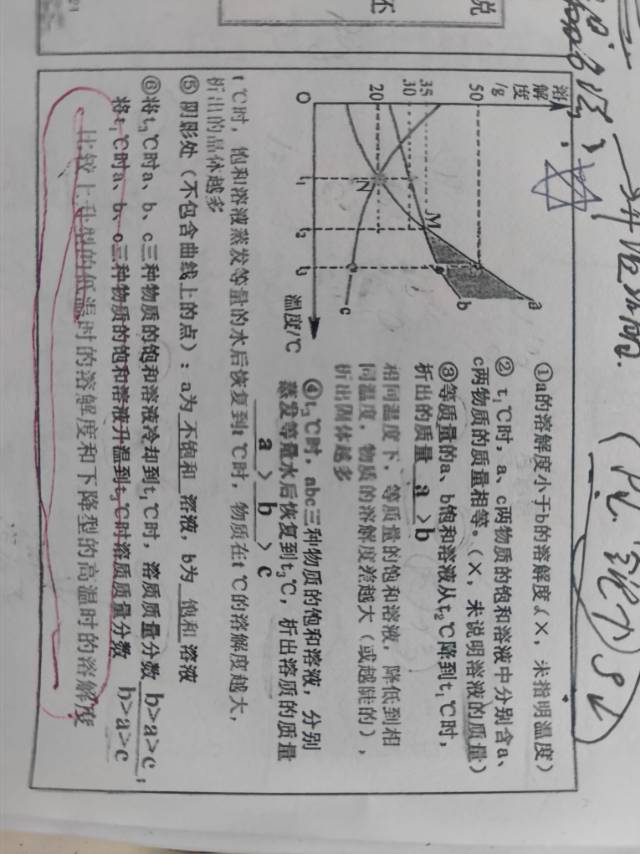 溶解度/g
50
35
30
20
O
t₁
t₂
t₃
温度/℃
M
N
a
b
c
①a的溶解度小于b的溶解度(×，未指明温度)
② t₁℃时，a、c两物质的饱和溶液中分别含a、
c两物质的质量相等。(×，未说明溶液的质量)
③等质量的a、b饱和溶液从t₂℃降到t₁℃时，
析出的质量 a > b
相同温度下，等质量的饱和溶液，降低到相
同温度，物质的溶解度差越大（或越陡的），
析出固体越多
④t₃℃时，abc三种物质的饱和溶液，分别
蒸发等量水后恢复到t₃℃，析出溶质的质量
a > b > c
t℃时，饱和溶液蒸发等量的水后恢复到t℃时，物质在t℃的溶解度越大，
析出的晶体越多
⑤ 阴影处（不包含曲线上的点）：a为 不饱和 溶液，b为 饱和 溶液
⑥将t₃℃时a、b、c三种物质的饱和溶液冷却到t₁℃时，溶质质量分数 b>a>c；
将t₁℃时a、b、c三种物质的饱和溶液升温到t₃℃时溶质质量分数 b>a>c
比较上升型的低温时的溶解度和下降型的高温时的溶解度